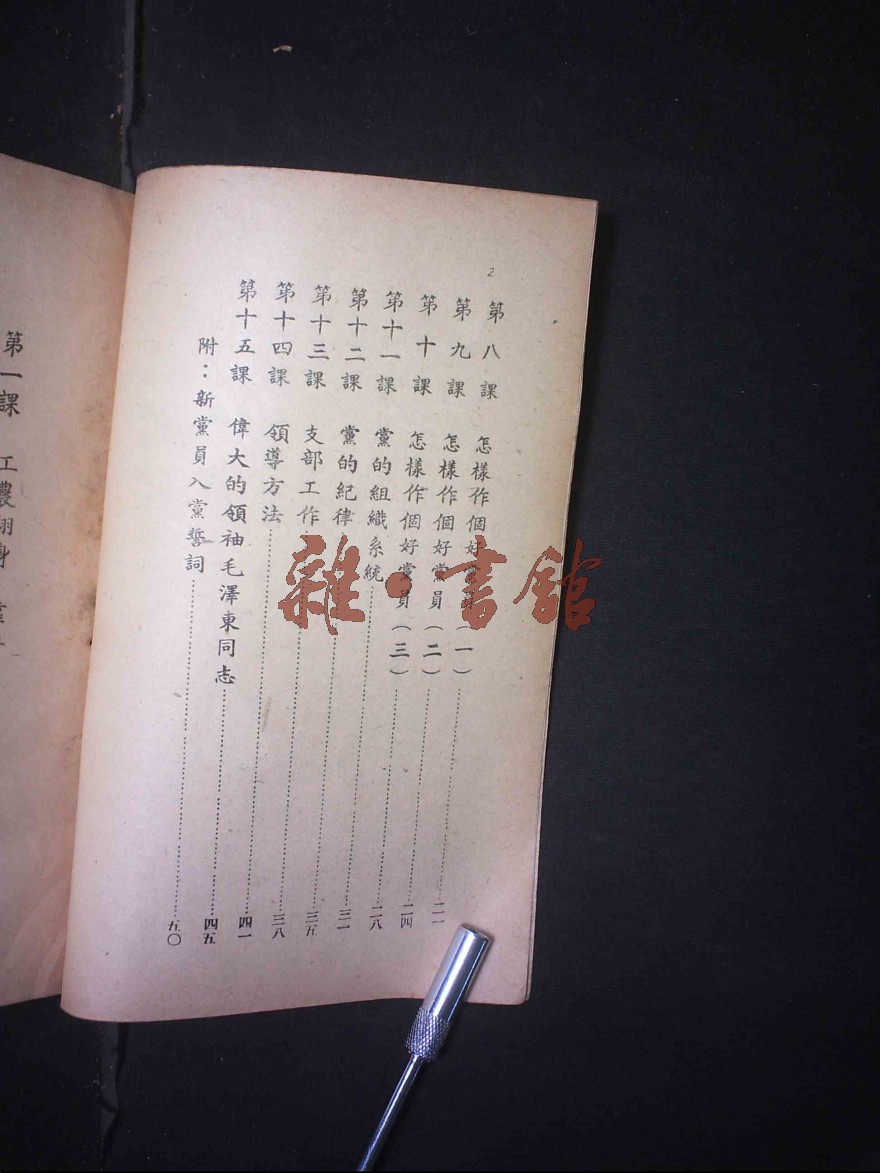 2
第八課　怎樣作個好黨員（一）………二一
第九課　怎樣作個好黨員（二）………二四
第十課　怎樣作個好黨員（三）………二八
第十一課　黨的組織系統………三一
第十二課　黨的紀律………三五
第十三課　支部工作………三八
第十四課　領導方法………四一
第十五課　偉大的領袖毛澤東同志………四五
附：新黨員入黨誓詞………五〇
第一課　工農翻身
雜·書館